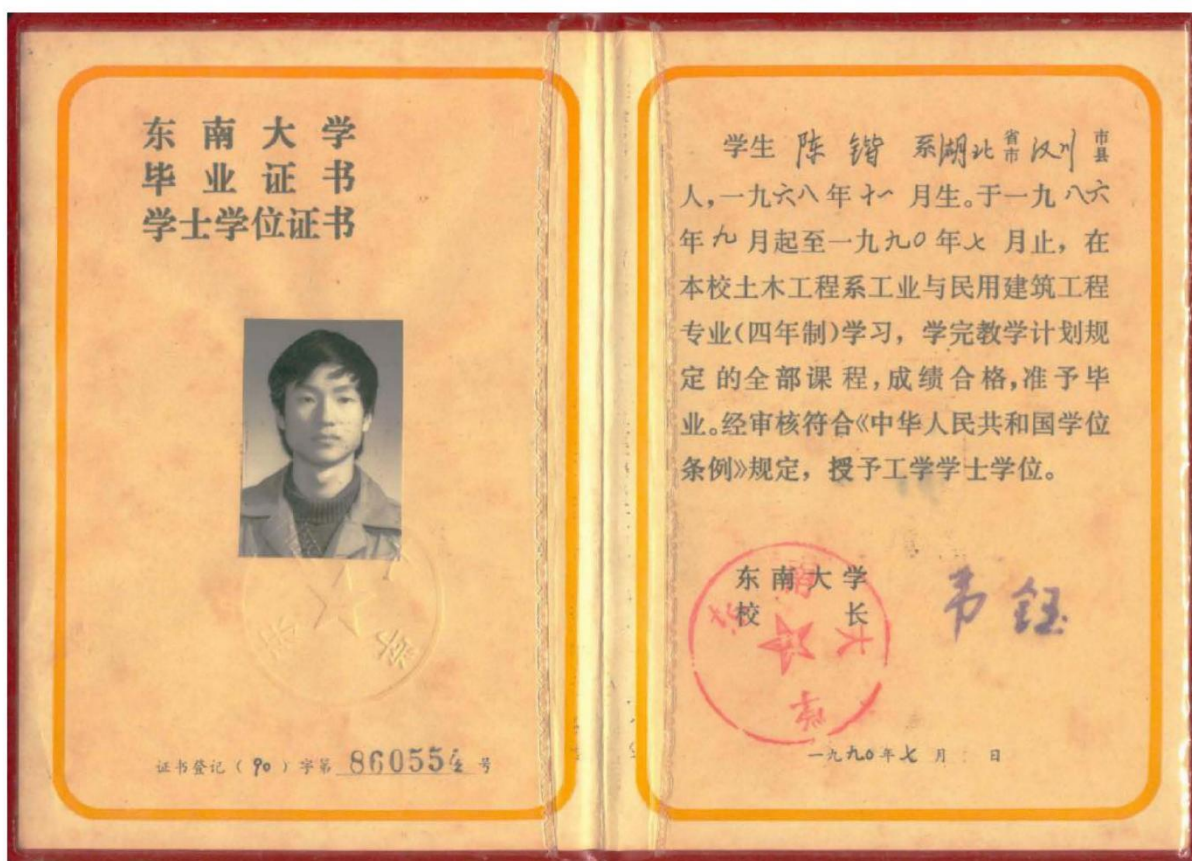 东南大学
毕业证书
学士学位证书
证书登记(90)字第 86055 号
学生 陈锴 系湖北省市汉川市县
人,一九六八年十一月生。于一九八六
年九月起至一九九〇年七月止,在
本校土木工程系工业与民用建筑工程
专业(四年制)学习,学完教学计划规
定的全部课程,成绩合格,准予毕
业。经审核符合《中华人民共和国学位
条例》规定,授予工学学士学位。
东南大学
校长 韦钰
东南大学
一九九〇年七月 日